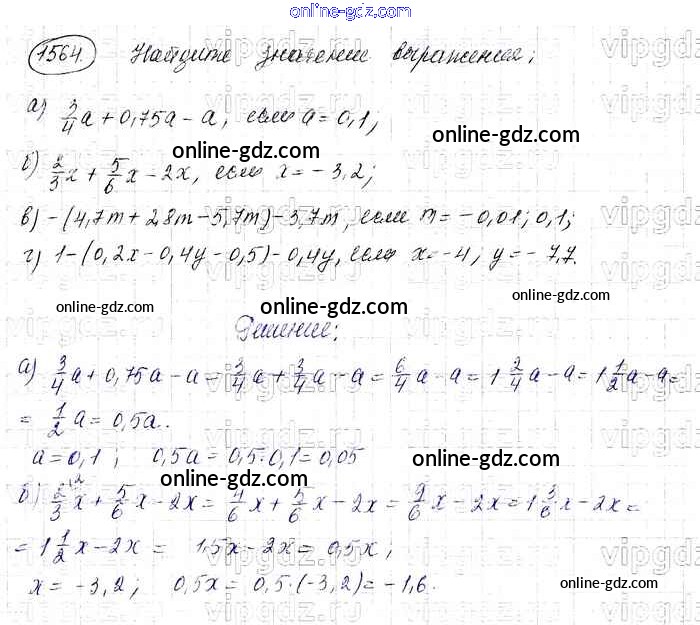 online-gdz.com
1564. Найдите значение выражения:
а) 3/4a + 0,75a - a, если a = 0,1;
online-gdz.com
online-gdz.com
б) 2/3x + 5/6x - 2x, если x = - 3,2;
в) - (4,7m + 2,8m - 5,7m) - 3,7m, если m = - 0,01; 0,1;
г) 1 - (0,2x - 0,4y - 0,5) - 0,4y, если x = -4; y = - 7,7.
online-gdz.com
online-gdz.com
online-gdz.com
Решение:
а) 3/4a + 0,75a - a = 3/4a + 3/4a - a = 6/4a - a = 1 2/4a - a = 1 1/2a - a =
= 1/2a = 0,5a.
a = 0,1; 0,5a = 0,5·0,1 = 0,05
online-gdz.com
online-gdz.com
б) 2/3x + 5/6x - 2x = 4/6x + 5/6x - 2x = 9/6x - 2x = 1 3/6x - 2x =
= 1 1/2x - 2x = 1,5x - 2x = 0,5x;
x = -3,2; 0,5x = 0,5·(-3,2) = -1,6.
online-gdz.com
online-gdz.com